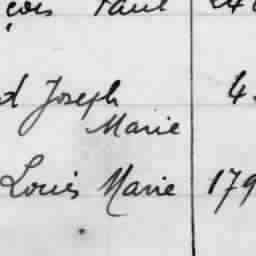 çois Paul 24
d Joseph 4
Marie
Louis Marie 179